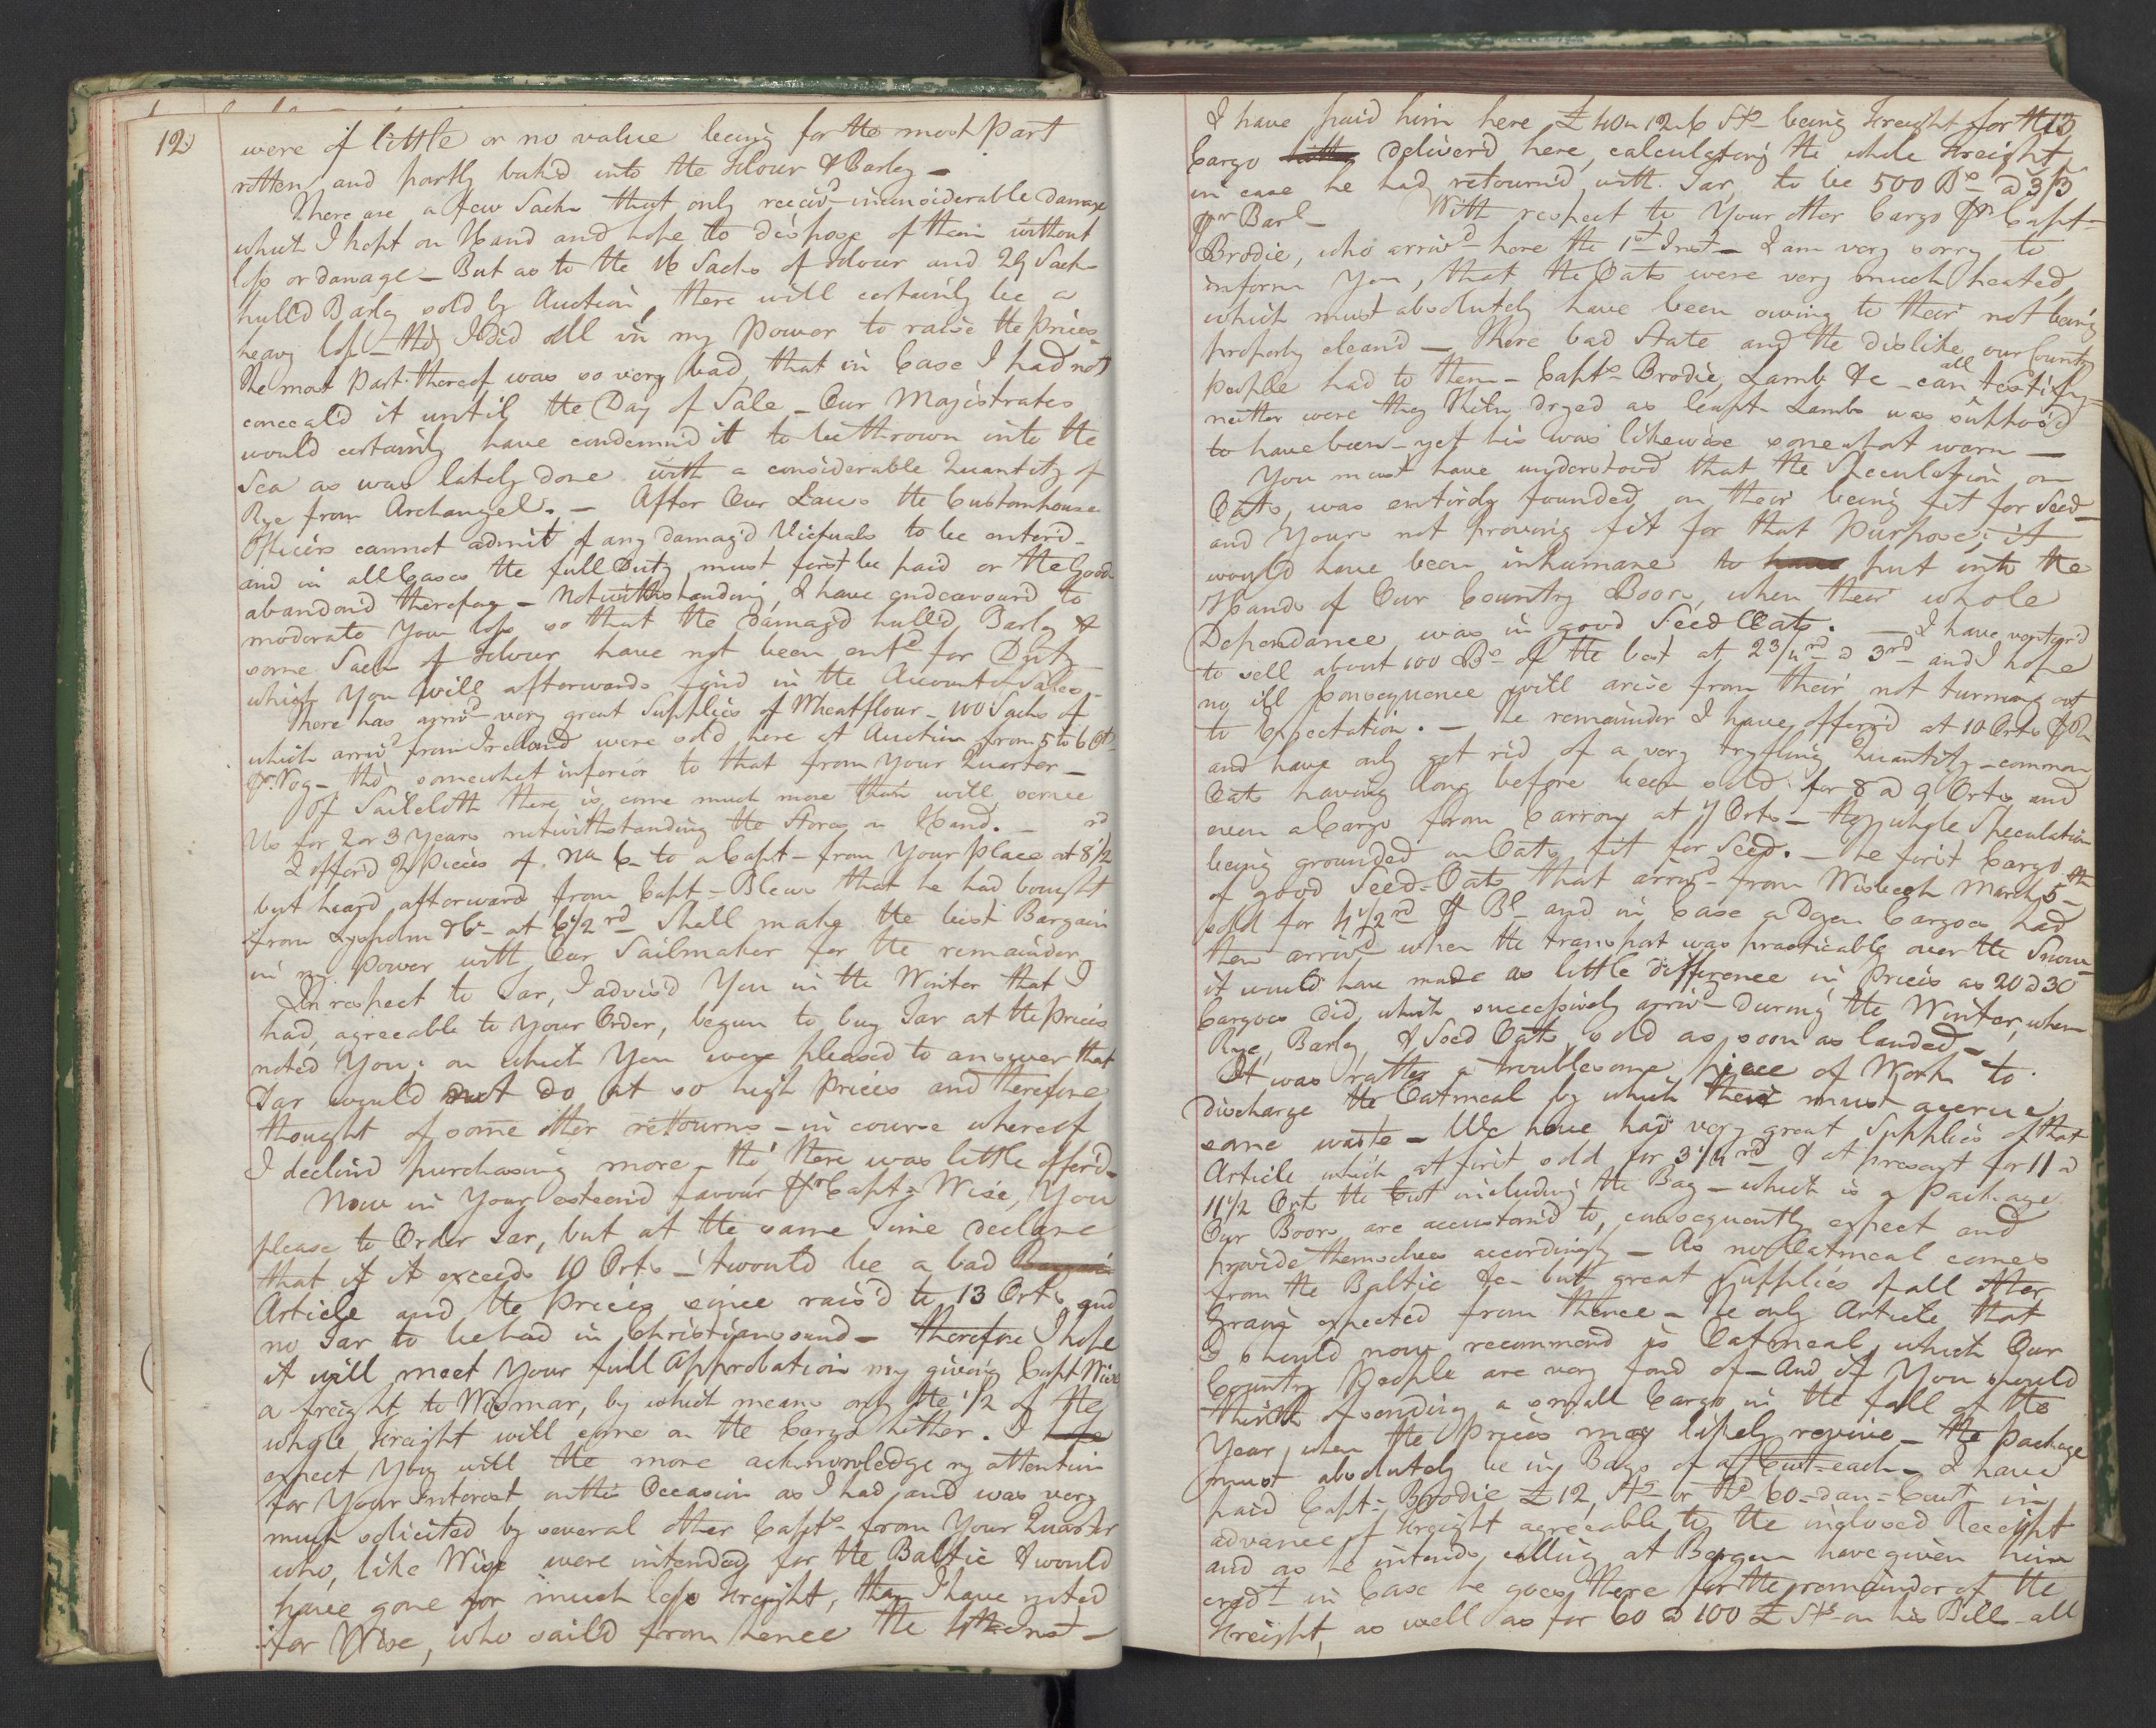 12)
were of little or no value being for the most Part
rotten and partly bak'd into the Flour & Barley –
There are a few Sacks that only receiv'd inconsiderable damage
which I kept on Hand and hope to dispose of them without
loss or damage – But as to the 16 Sacks of Flour and 29 Sacks
hull'd Barley sold by Auction, there will certainly be a
heavy loss – tho' I did all in my Power to raise the Prices
The most Part thereof was so very bad, that in Case I had not
conceal'd it until the Day of Sale – Our Majistrates
would certainly have condemn'd it to be thrown into the
Sea as was lately done with a considerable Quantity of
Rye from Archangel. – After Our Laws the Customhouse
Officers cannot admit of any damag'd Victuals to be enter'd –
and in all Cases the full Duty must first be paid or the Goods
abandon'd therefor – Notwithstanding, I have endeavour'd to
moderate Your loss so that the Damag'd hull'd Barley &
some Sacks of Flour have not been entd for Duty
which You will afterwards find in the Account of Sales –
There has arriv'd very great Supplies of Wheatflour – 100 Sacks of
which arriv'd from Ireland were sold here at Auction from 5 to 6 Ort
pr Vog – tho' somewhat inferior to that from Your Quarter –
Of Sailcloth there is come much more than will serve
Us for 2 or 3 Years notwithstanding the Stores on Hand. –
I offer'd 2 Pieces of No 6 to a Capt – from Your Place at 8 1/2 rd
but heard afterward from Capt – Blews that he had bought
from Lysholm & Co – at 6 1/2 rd Shall make the best Bargain
in my Power with Our Sailmaker for the remainder
In respect to Tar, I advis'd You in the Winter that I
had, agreeable to Your Order, begun to buy Tar at the Prices
noted You; on which You were pleased to answer that
Tar would not do at so high Prices and therefore
thought of some other retourns – in course whereof
I declin'd purchasing more – tho' there was little offer'd –
Now in Your esteem'd favour pr Capt – Wise, You
please to Order Tar, but at the same Time declare
that if it exceeds 10 Orts – 'twould be a bad Bargain
Article and the Prices since rais'd to 13 Orts and
no Tar to be had in Christiansund – therefore I hope
it will meet Your full Approbation my giving Capt Wise
a freight to Wismar, by which means only the 1/2 of the
whole Freight will come on the Cargo hither. I hope
expect You will the more acknowledge my attention
for Your Interest on this Occasion as I had, and was very
much solicited by several other Capts – from Your Quarter
who, like Wise were intended for the Baltic & would
have gone for much less Freight, than I have noted
for Wise, who sail'd from hence the 4th Inst –
13
I have paid him here £ 40 „ 12 „ 6 Stg – being Freight for the
Cargo hither deliver'd here, calculating the whole Freight,
in case he had retourn'd with Tar, to be 500 Bs – a 3/3
pr Barl – With respect to Your other Cargo pr Capt –
Brodie, who arriv'd here the 1st Inst – I am very sorry to
inform You, that the Oats were very much heated,
which must absolutely have been owing to their not being
properly clean'd – There bad State and the dislike our Country
People had to them – Capts Brodie, Lamb &c – can all testify –
neither were they Kiln dryed as least Lambs was suppos'd
to have been – yet his was likewise somewhat warm –
You must have understood that the Speculation on
Oats, was entirely founded, on their being fit for Seed –
and Yours not proving fit for that Purpose; it
would have been inhumane to have put into the
Hands of Our Country Boors, when their whole
Dependance was in good Seed Oats. – I have ventur'd
to sell about 100 Bs of the best at 2 3/4 rd a 3 rd – and I hope
no ill Consequence will arise from their not turning out
to Expectation. – The remainder I have offer'd at 10 Orts pr Bl
and have only got rid of a very tryfling Quantity – common
Oats having long before been sold for 8 a 9 Orts and
even a Cargo from Carron at 7 Orts – the whole Speculation
being grounded on Oats fit for Seed. – The first Cargo
of good Seed-Oats that arriv'd from Wisbech March 5th
sold for 4 1/2 rd pr Bl – and in Case a Dozen Cargoes had
then arriv'd when the transport was practicable over the Snow
it would have made as little difference in Prices as 20 a 30
Cargoes did, which successively arriv'd During the Winter, when
Rye, Barley, & Seed Oats sold as soon as landed –
It was rather a troublesome piece of Work to
Discharge the Oatmeal by which there must accrue
some waste – We have had very great Supplies of that
Article which at first sold for 3 1/4 rd & at present for 11 a
11 1/2 Ort the Cwt including the Bag – which is a Package
Our Boors are accustom'd to, consequently expect and
provide themselves accordingly – As no Oatmeal comes
from the Baltic &c – but great Supplies of all other
Grain expected from thence – The only Article that
I should now recommend is Oatmeal, which Our
Country People are very fond of – And if You should
think of sending a small Cargo in the fall of the
Year, when the Prices may likely revive – the Package
must absolutely be in Bags of a Cwt – each – I have
paid Capt – Brodie £ 12, Stg – or Rd 60 – Dan = Court in
advance of Freight agreeable to the inclosed Receipt
and as he intends calling at Bergen have given him
credt – in Case he goes there for the remainder of the
Freight, as well as for 60 a 100 £ Stg – on his Bill – all